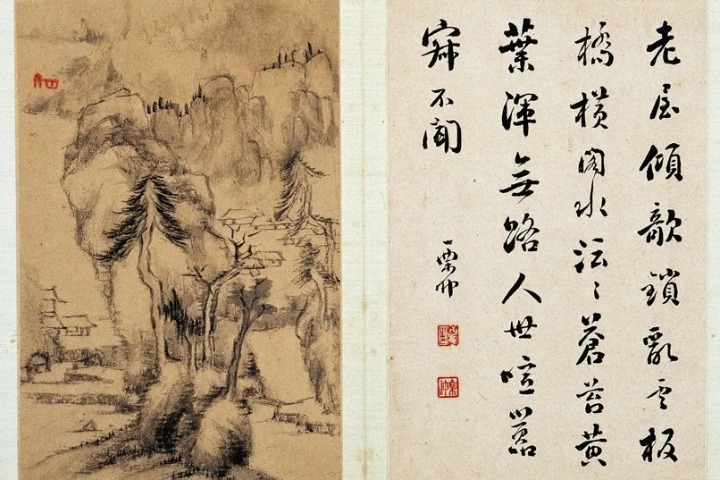 老屋傾欹鎖亂雲板
橋橫閣水沄〻蒼苔黃
葉渾無路人世喧囂
寂不聞